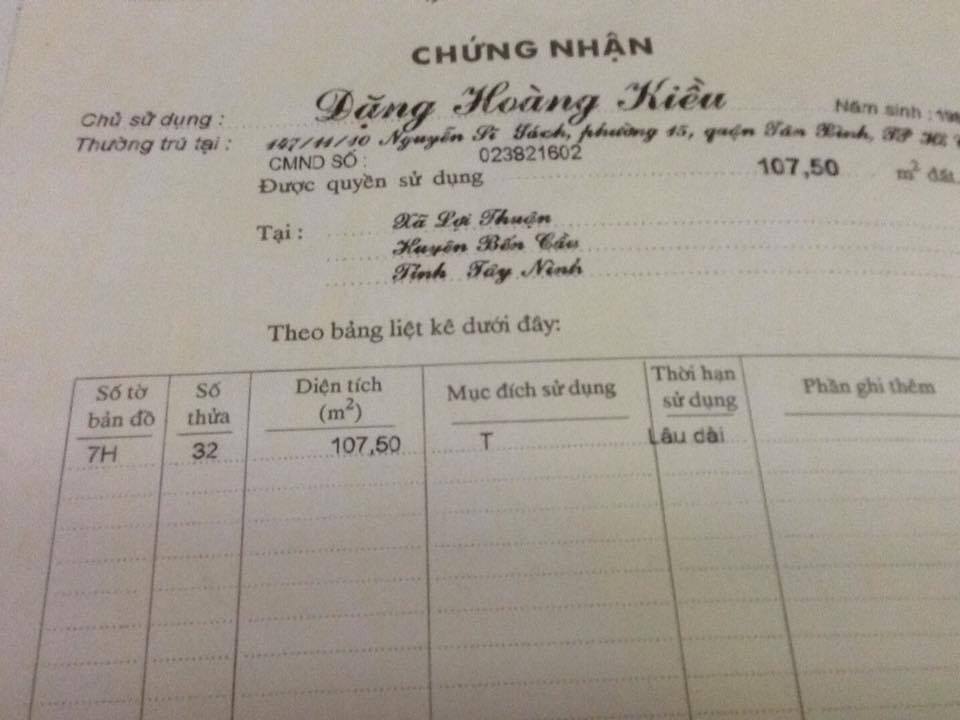 CHỨNG NHẬN
Chủ sử dụng : Đặng Hoàng Kiều Năm sinh :
Thường trú tại : 147/11/10 Nguyễn Sĩ Sách, phường 15, quận Tân Bình, TP
CMND SỐ : 023821602
Được quyền sử dụng 107,50 m² đất
Tại : Xã Lợi Thuận
Huyện Bến Cầu
Tỉnh Tây Ninh
Theo bảng liệt kê dưới đây:
Số tờ bản đồ Số thửa Diện tích (m²) Mục đích sử dụng Thời hạn sử dụng Phần ghi thêm
7H 32 107,50 T Lâu dài